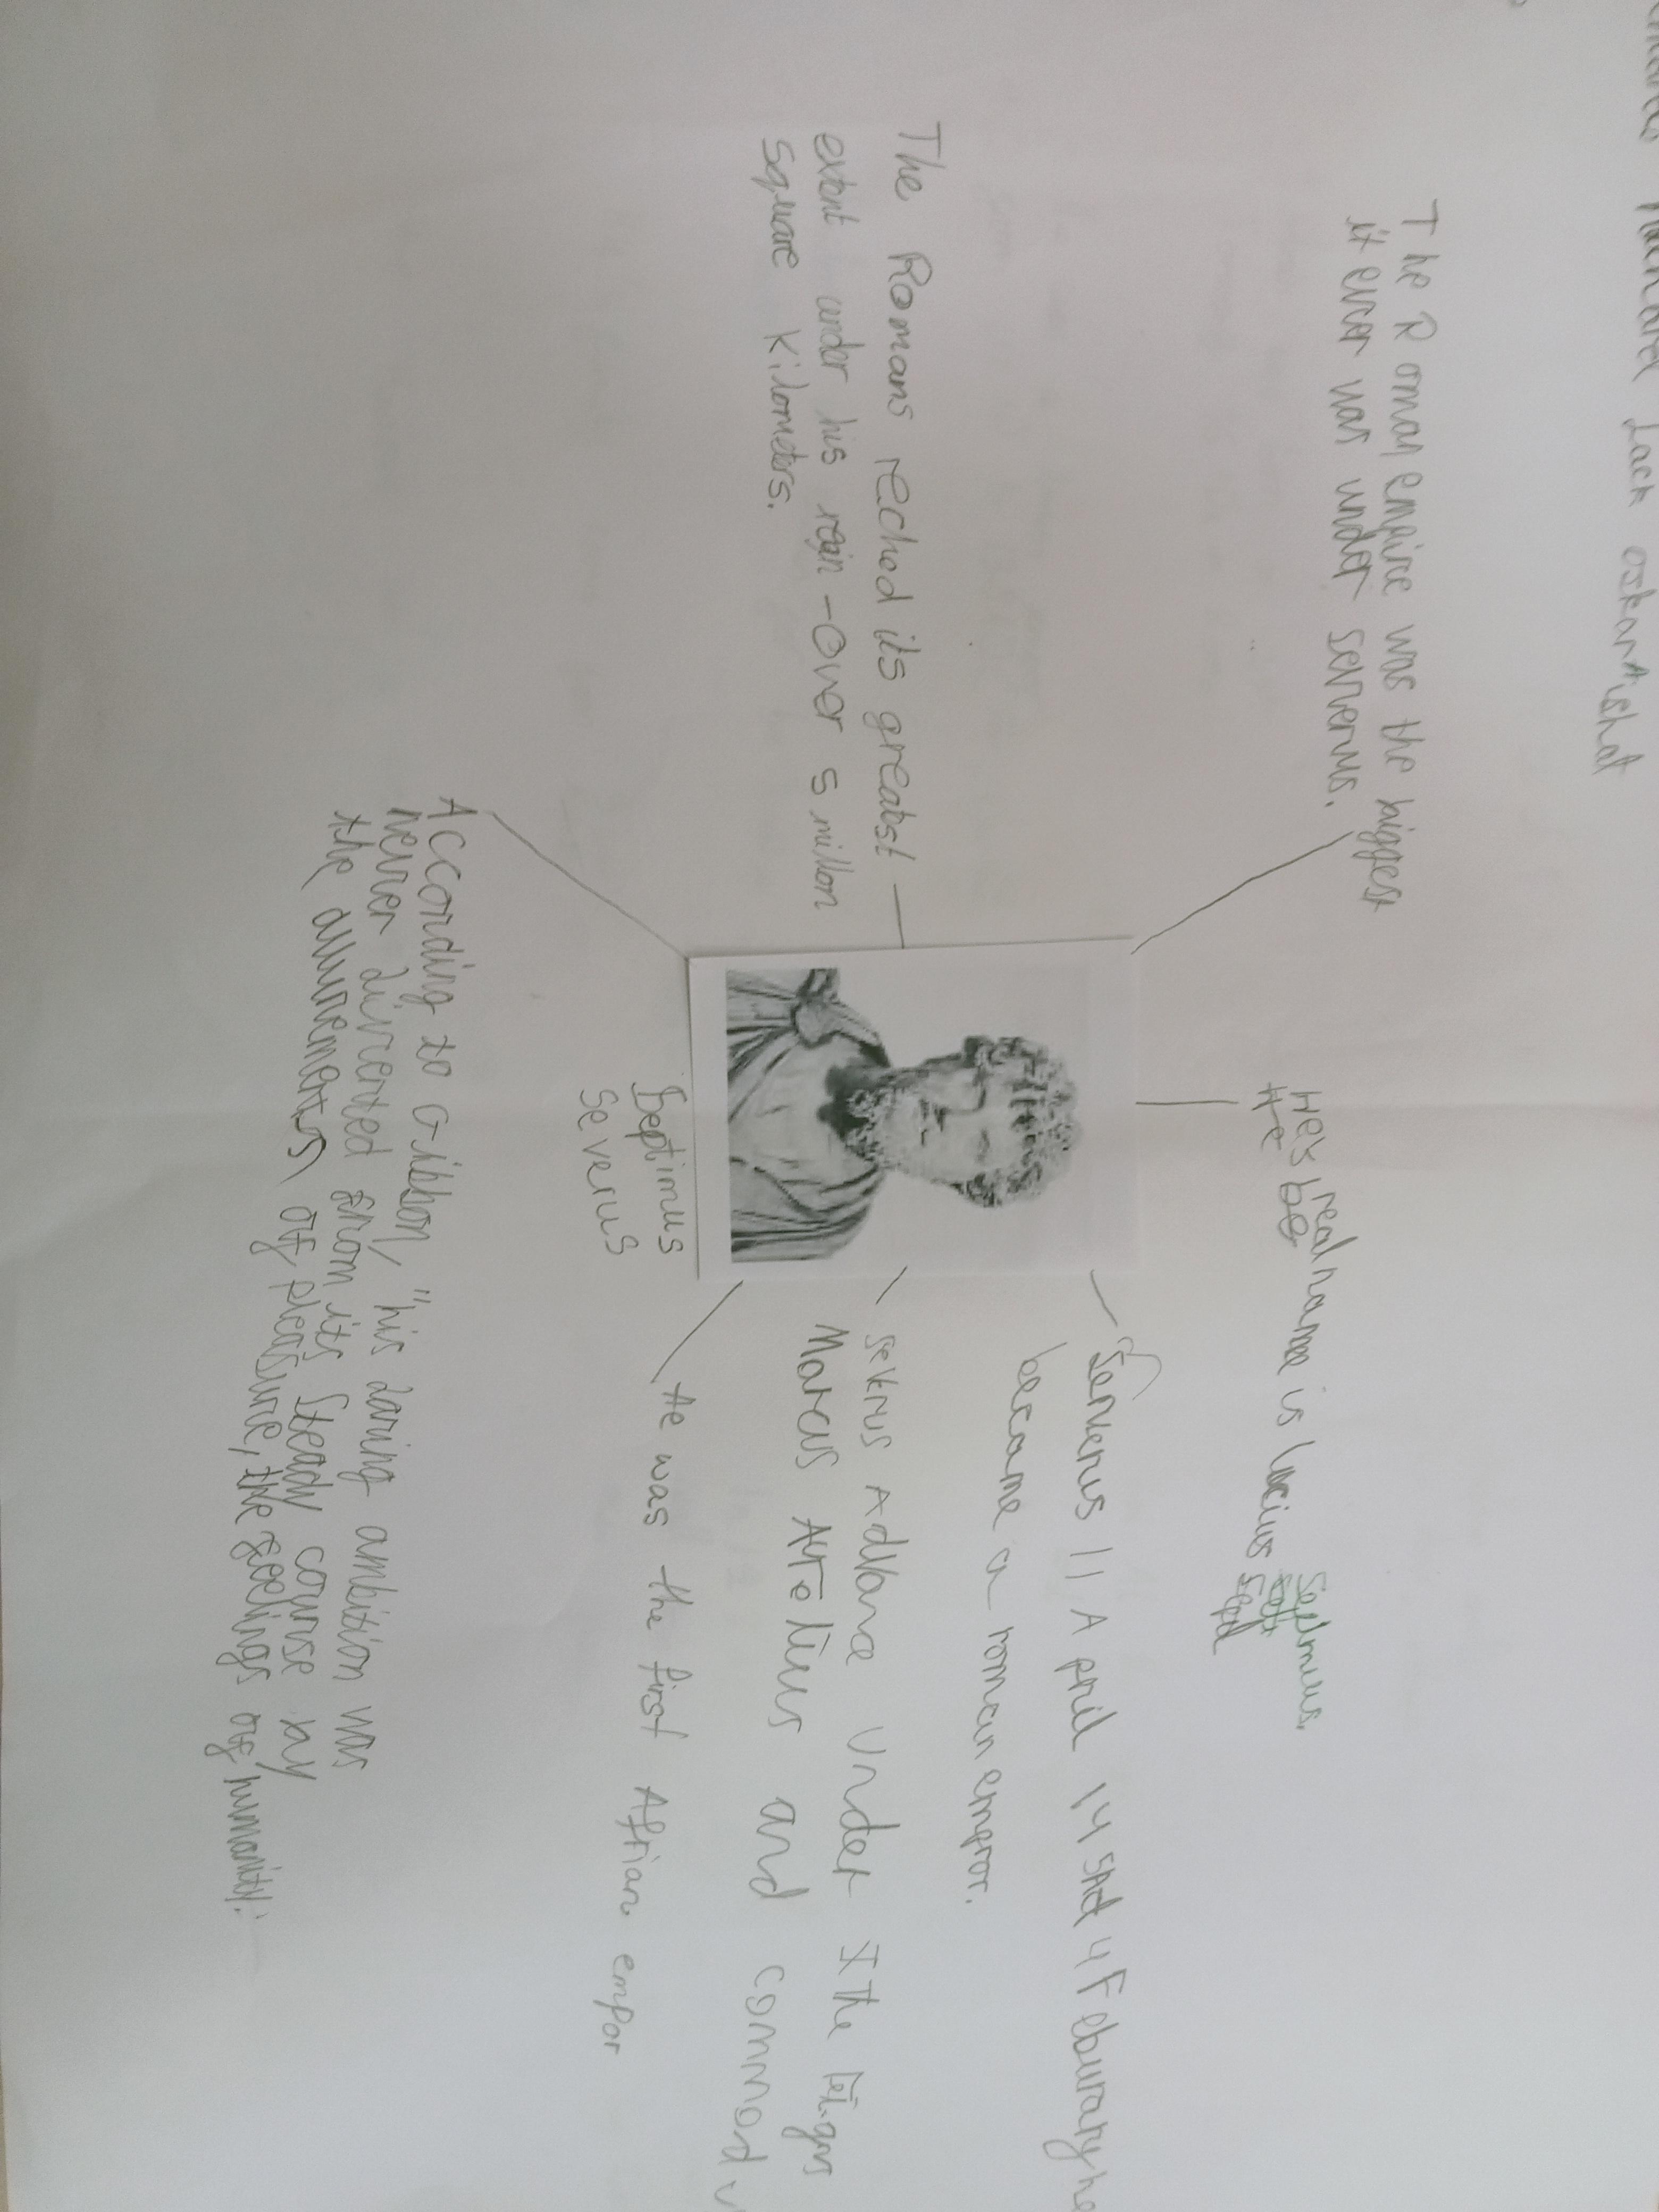 Jack oskar Aishat
The Roman empire was the biggest
it ever was under serverus.
The Romans reched its greatest
extent under his reign - Over 5 millon
square kilometers.
He's real name is lucius Septimus.
He be
Serverus 11 April 145 Ad 4 Febuarary he
became a roman empror.
Marcus and commod
Under the reigns
He was the first Afrian empor
Septimus
Severus
According to Gibbon, "his daring ambition was
never diverted from its steady course by
the allurements of pleasure, the feelings of humanity."